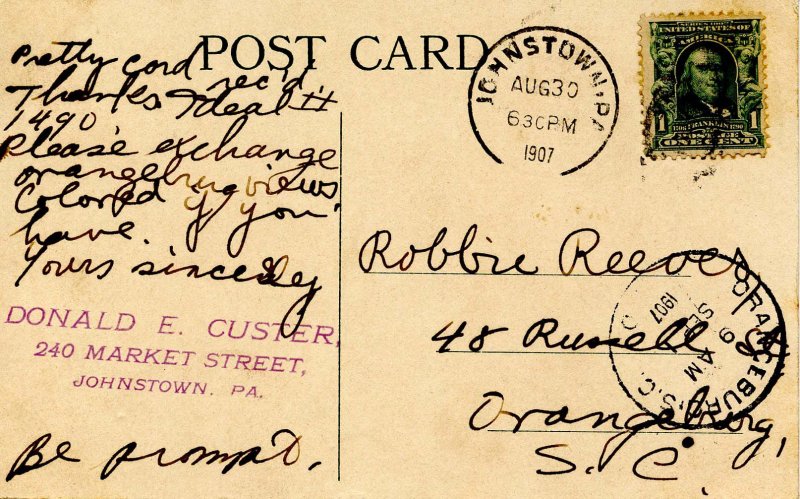 POST CARD
Pretty card rec'd.
Thanks Ideal #
1490
Please exchange
orangeburg views
Colored if you
have.
Yours sincerely
DONALD E. CUSTER,
240 MARKET STREET,
JOHNSTOWN, PA.
Be prompt.
JOHNSTOWN, PA
AUG 30
630PM
1907
SERIES 1902
UNITED STATES OF
AMERICA
1 1
FRANKLIN
POSTAGE
ONE CENT
Robbie Reeves,
48 Russell St
Orangeburg,
S. C.
ORANGEBURG, S.C.
AM
1907